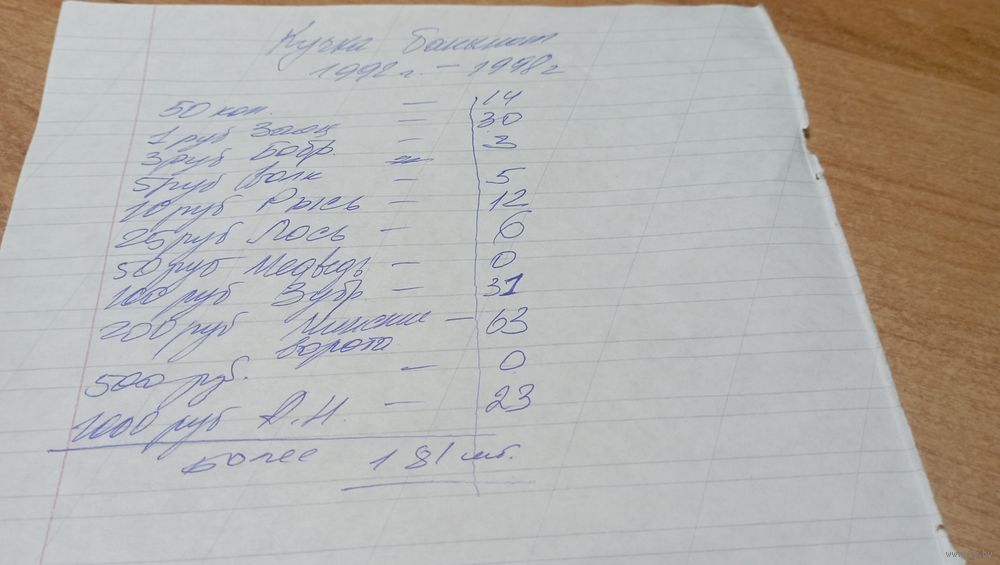 Кучка банкнот
1992 г. – 1998 г
50 коп. — 14
1 руб Заяц — 30
3 руб Бобр. — 3
5 руб Волк — 5
10 руб Рысь — 12
25 руб Лось — 6
50 руб Медведь — 0
100 руб Зубр — 31
200 руб Минские — 63
ворота
500 руб. — 0
1000 руб А.Н. — 23
Более 181 шт.